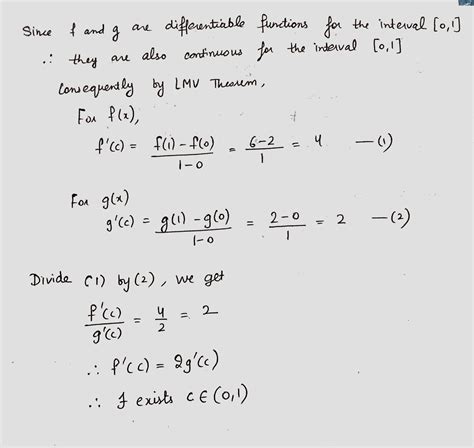 Since f and g are differentiable functions for the interval [0,1]
∴ they are also continuous for the interval [0,1]
Consequently by LMV Theorem,
For f(x),
f'(c) = f(1) - f(0) / 1-0 = 6-2 / 1 = 4 —(1)
For g(x)
g'(c) = g(1) - g(0) / 1-0 = 2-0 / 1 = 2 —(2)
Divide (1) by (2), we get
f'(c) / g'(c) = 4/2 = 2
∴ f'(c) = 2g'(c)
∴ J exists c ∈ (0,1)